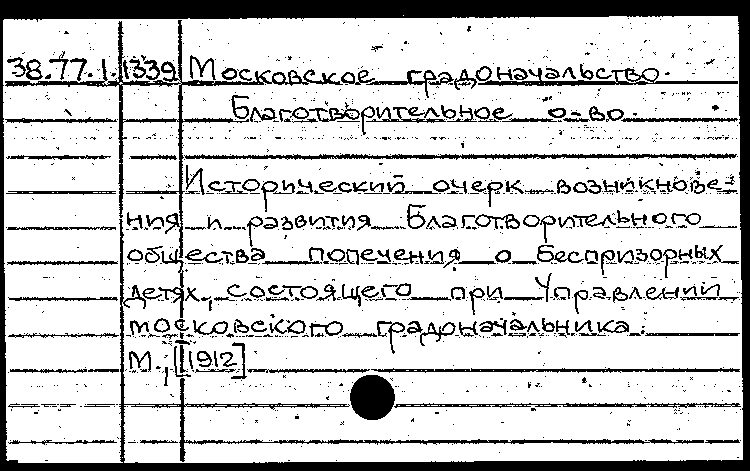 38.77.1.1339 Московское градоначальство.
Благотворительное о-во.
Исторический очерк возникнове-
ния и развития Благотворительного
общества попечения о беспризорных
детях, состоящего при Управлении
московского градоначальника.
М., [1912]